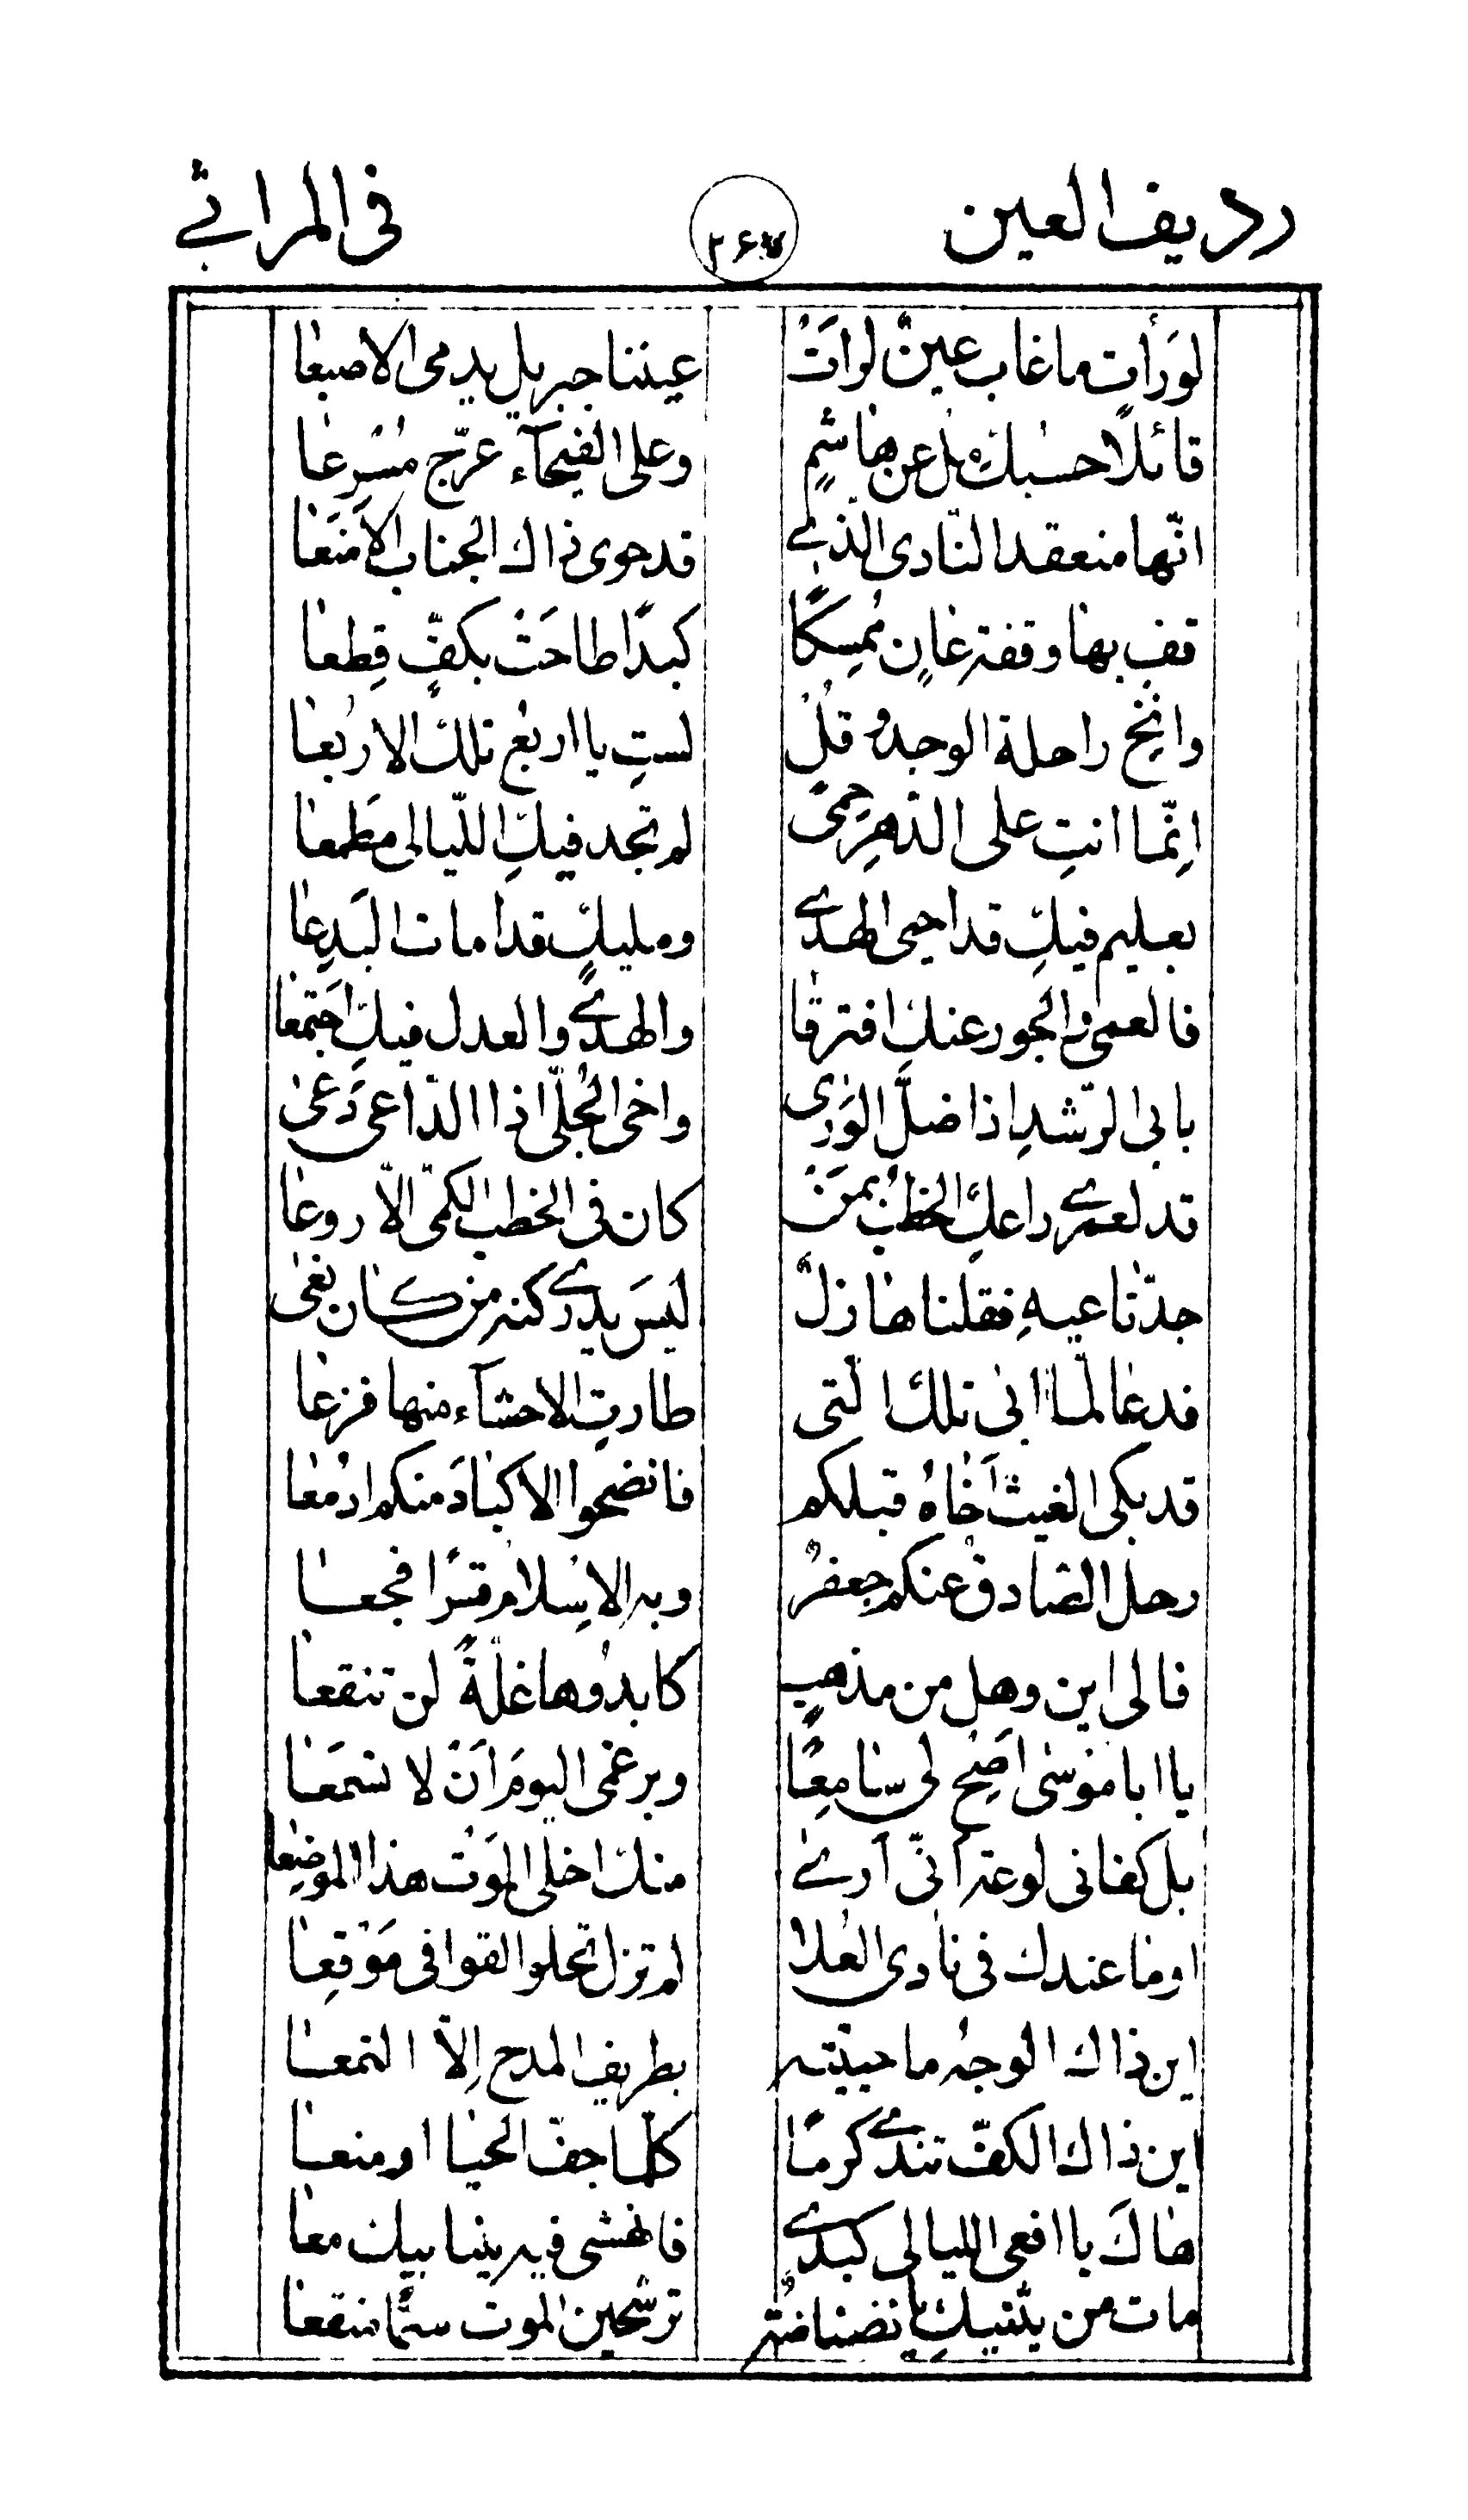 رديف العين ٢٦٧ في المراثي
لَو رأت ما غاب عينٌ لرأت عيننا جبريل يدمي الاصبعا
قائلًا حسبك مل عن هاشمٍ وعلى الفيحآء عرّج مُسْرِعا
انّها منعقد النّادي الذي قد حوى ذاك الجناب الأمنَعا
قف بها وقفة عانٍ مُمسِكًا كبدًا طاحَتْ بكفٍّ قِطعا
وانِخ راحلة الوجد وقُلْ لستِ يا اربُع تلك الاربُعا
اِنّما انتِ على الدّهرِ حِمىً لم تجد فيكِ اللّيالي مَطمعا
بعليم فيكِ قد احيى الهدى ومليكٍ قد امات البِدَعا
فالعمى والجور عنكِ افترقا والهدى والعدل فيكِ اجتمَعا
بابي الرّشدِ اذا ضلَّ الوَرى واخي الجُلّى اذا الدّاعي دَعى
قد لعمري راعكِ الخطبُ بمَنْ كان في الخطب الكميّ الأروعا
جدّ ناعيهِ فقلنا هازلٌ ليسَ يدري كنه من كان نعى
فدعا لمّا ابى تلك الّتي طارتِ الاحشآء منها فزعا
قد بكى الغيث اَخاهُ قبلكم فانضحوا الاكبادَ منكم ادمُعا
رحل الصّادقُ عنكم جعفرٌ وبه الاِسلامُ قسرًا فجعا
فالى اين وهل من مذهبٍ كابدوها غلّةً لن تنقعا
يا ابا مُوسى اَصِخ لي سامِعًا وبرغمي اليومَ اَنْ لا تسمَعا
بل كفاني لوعة أنّي أرى منك اخلى المَوْت هذا الموضِعا
اوما عندك في نادى العُلا لم تزل تحلو القوافي مَوْقِعا
اين ذاك الوجهُ ما حيّيته بطريف المدح اِلّا التمعا
اين ذاك الكفّ تندى كرمًا كلّما جفّ الحيا او منعا
هاكَ يا افعى الليالي كبدي فانهشي فيه بنابيك معا
مات من يثنيكِ يا نضناضةً ترشحين الموت سمًّا منقعا